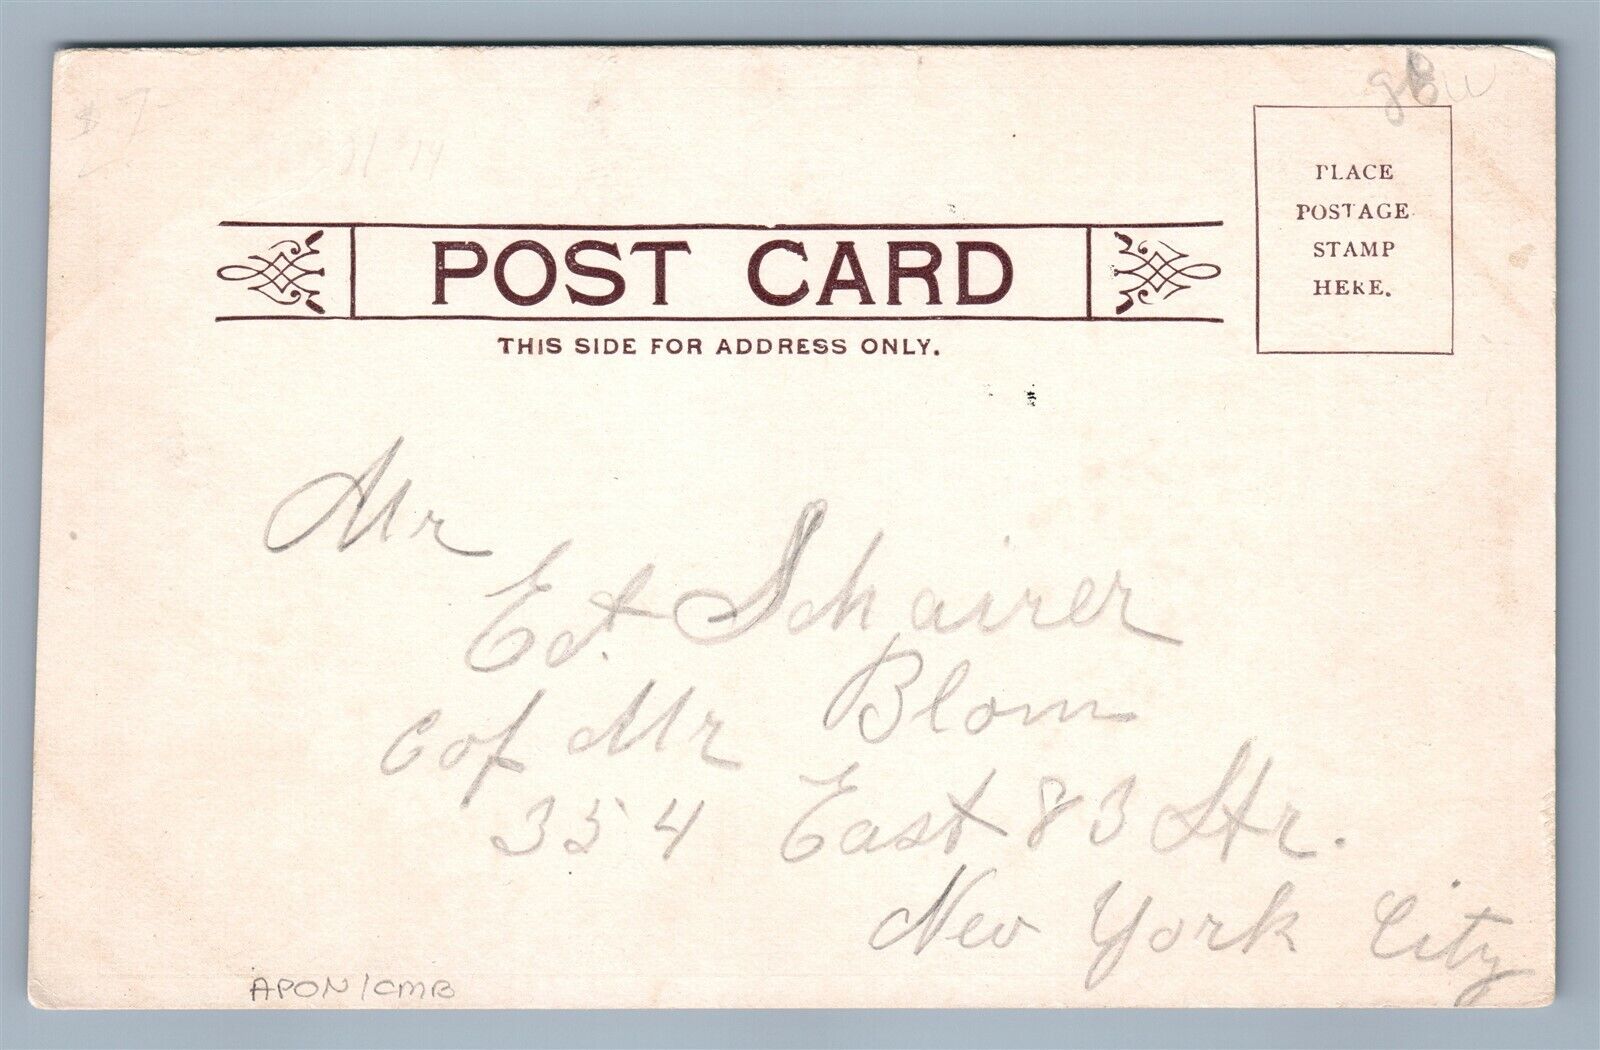 $7-
gBw
PLACE
POSTAGE
STAMP
HERE.
POST CARD
THIS SIDE FOR ADDRESS ONLY.
Mr
Ed. Schairer
Cof Mr Blom
354 East 83 Str.
New York City
APON/CMB